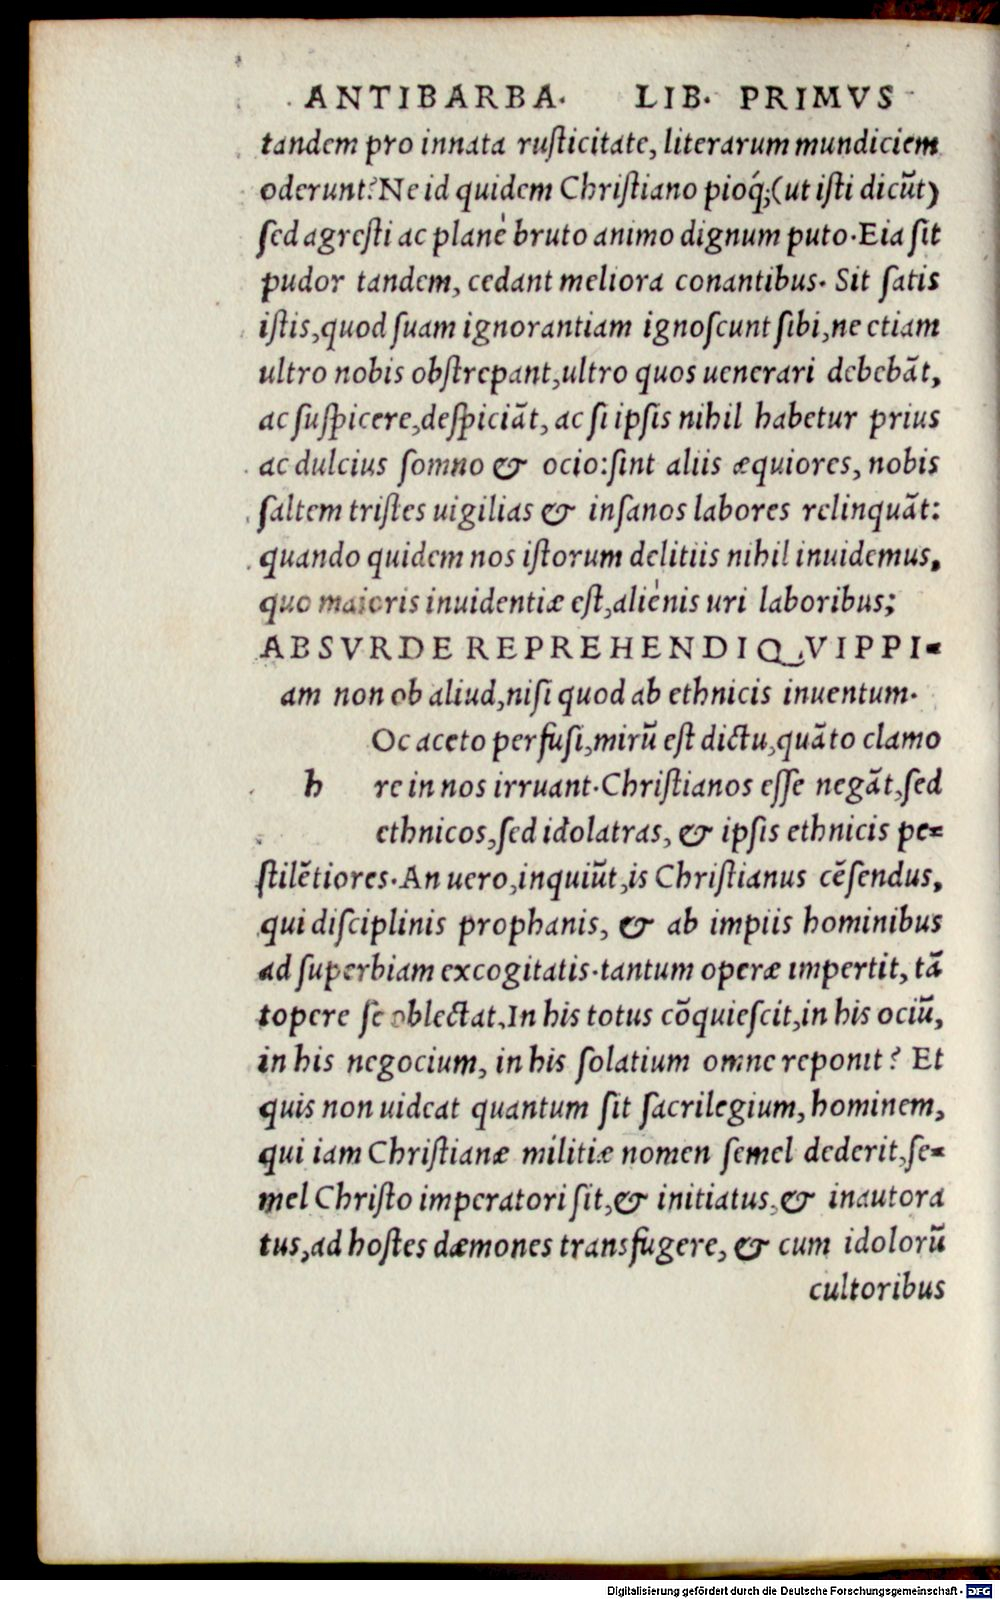 ANTIBARBA. LIB. PRIMVS
tandem pro innata ruſticitate, literarum mundiciem
oderunt? Ne id quidem Chriſtiano pioq́;(ut iſti dicũt)
ſed agreſti ac planè bruto animo dignum puto. Eia ſit
pudor tandem, cedant meliora conantibus. Sit ſatis
iſtis, quod ſuam ignorantiam ignoſcunt ſibi, ne etiam
ultro nobis obſtrepant, ultro quos uenerari debebãt,
ac ſuſpicere, deſpiciãt, ac ſi ipſis nihil habetur prius
ac dulcius ſomno & ocio: ſint aliis æquiores, nobis
ſaltem triſtes uigilias & inſanos labores relinquãt:
quando quidem nos iſtorum delitiis nihil inuidemus,
quo maioris inuidentiæ eſt, aliénis uri laboribus;
ABSVRDE REPREHENDI QVIPPI=
am non ob aliud, niſi quod ab ethnicis inuentum.
Oc aceto perfuſi, mirũ eſt dictu, quãto clamo
h re in nos irruant. Chriſtianos eſſe negãt, ſed
ethnicos, ſed idolatras, & ipſis ethnicis pe=
ſtilẽtiores. An uero, inquiũt, is Chriſtianus cẽſendus,
qui diſciplinis prophanis, & ab impiis hominibus
ad ſuperbiam excogitatis. tantum operæ impertit, tã
topere ſe oblectat. In his totus cõquieſcit, in his ociũ,
in his negocium, in his ſolatium omne reponit? Et
quis non uideat quantum ſit ſacrilegium, hominem,
qui iam Chriſtianæ militiæ nomen ſemel dederit, ſe=
mel Chriſto imperatori ſit, & initiatus, & inautora
tus, ad hoſtes dæmones transfugere, & cum idolorũ
cultoribus
Digitalisierung gefördert durch die Deutsche Forschungsgemeinschaft - DFG